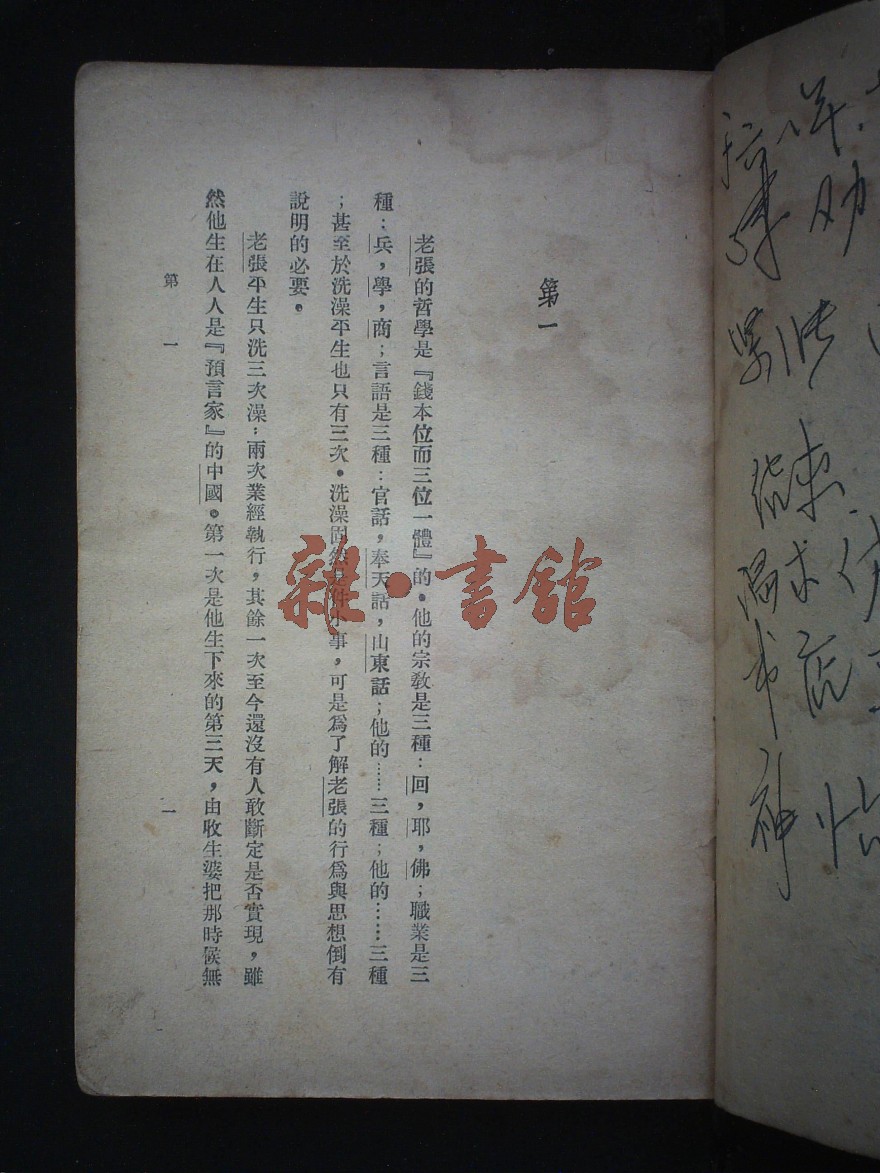 第一
老張的哲學是『錢本位而三位一體』的。他的宗敎是三種：回，耶，佛；職業是三
種：兵，學，商；言語是三種：官話，奉天話，山東話；他的……三種；他的……三種
；甚至於洗澡平生也只有三次。洗澡固然是件小事，可是爲了解老張的行爲與思想倒有
說明的必要。
老張平生只洗三次澡：兩次業經執行，其餘一次至今還沒有人敢斷定是否實現，雖
然他生在人人是『預言家』的中國。第一次是他生下來的第三天，由收生婆把那時候無
第一
一
雜·書館